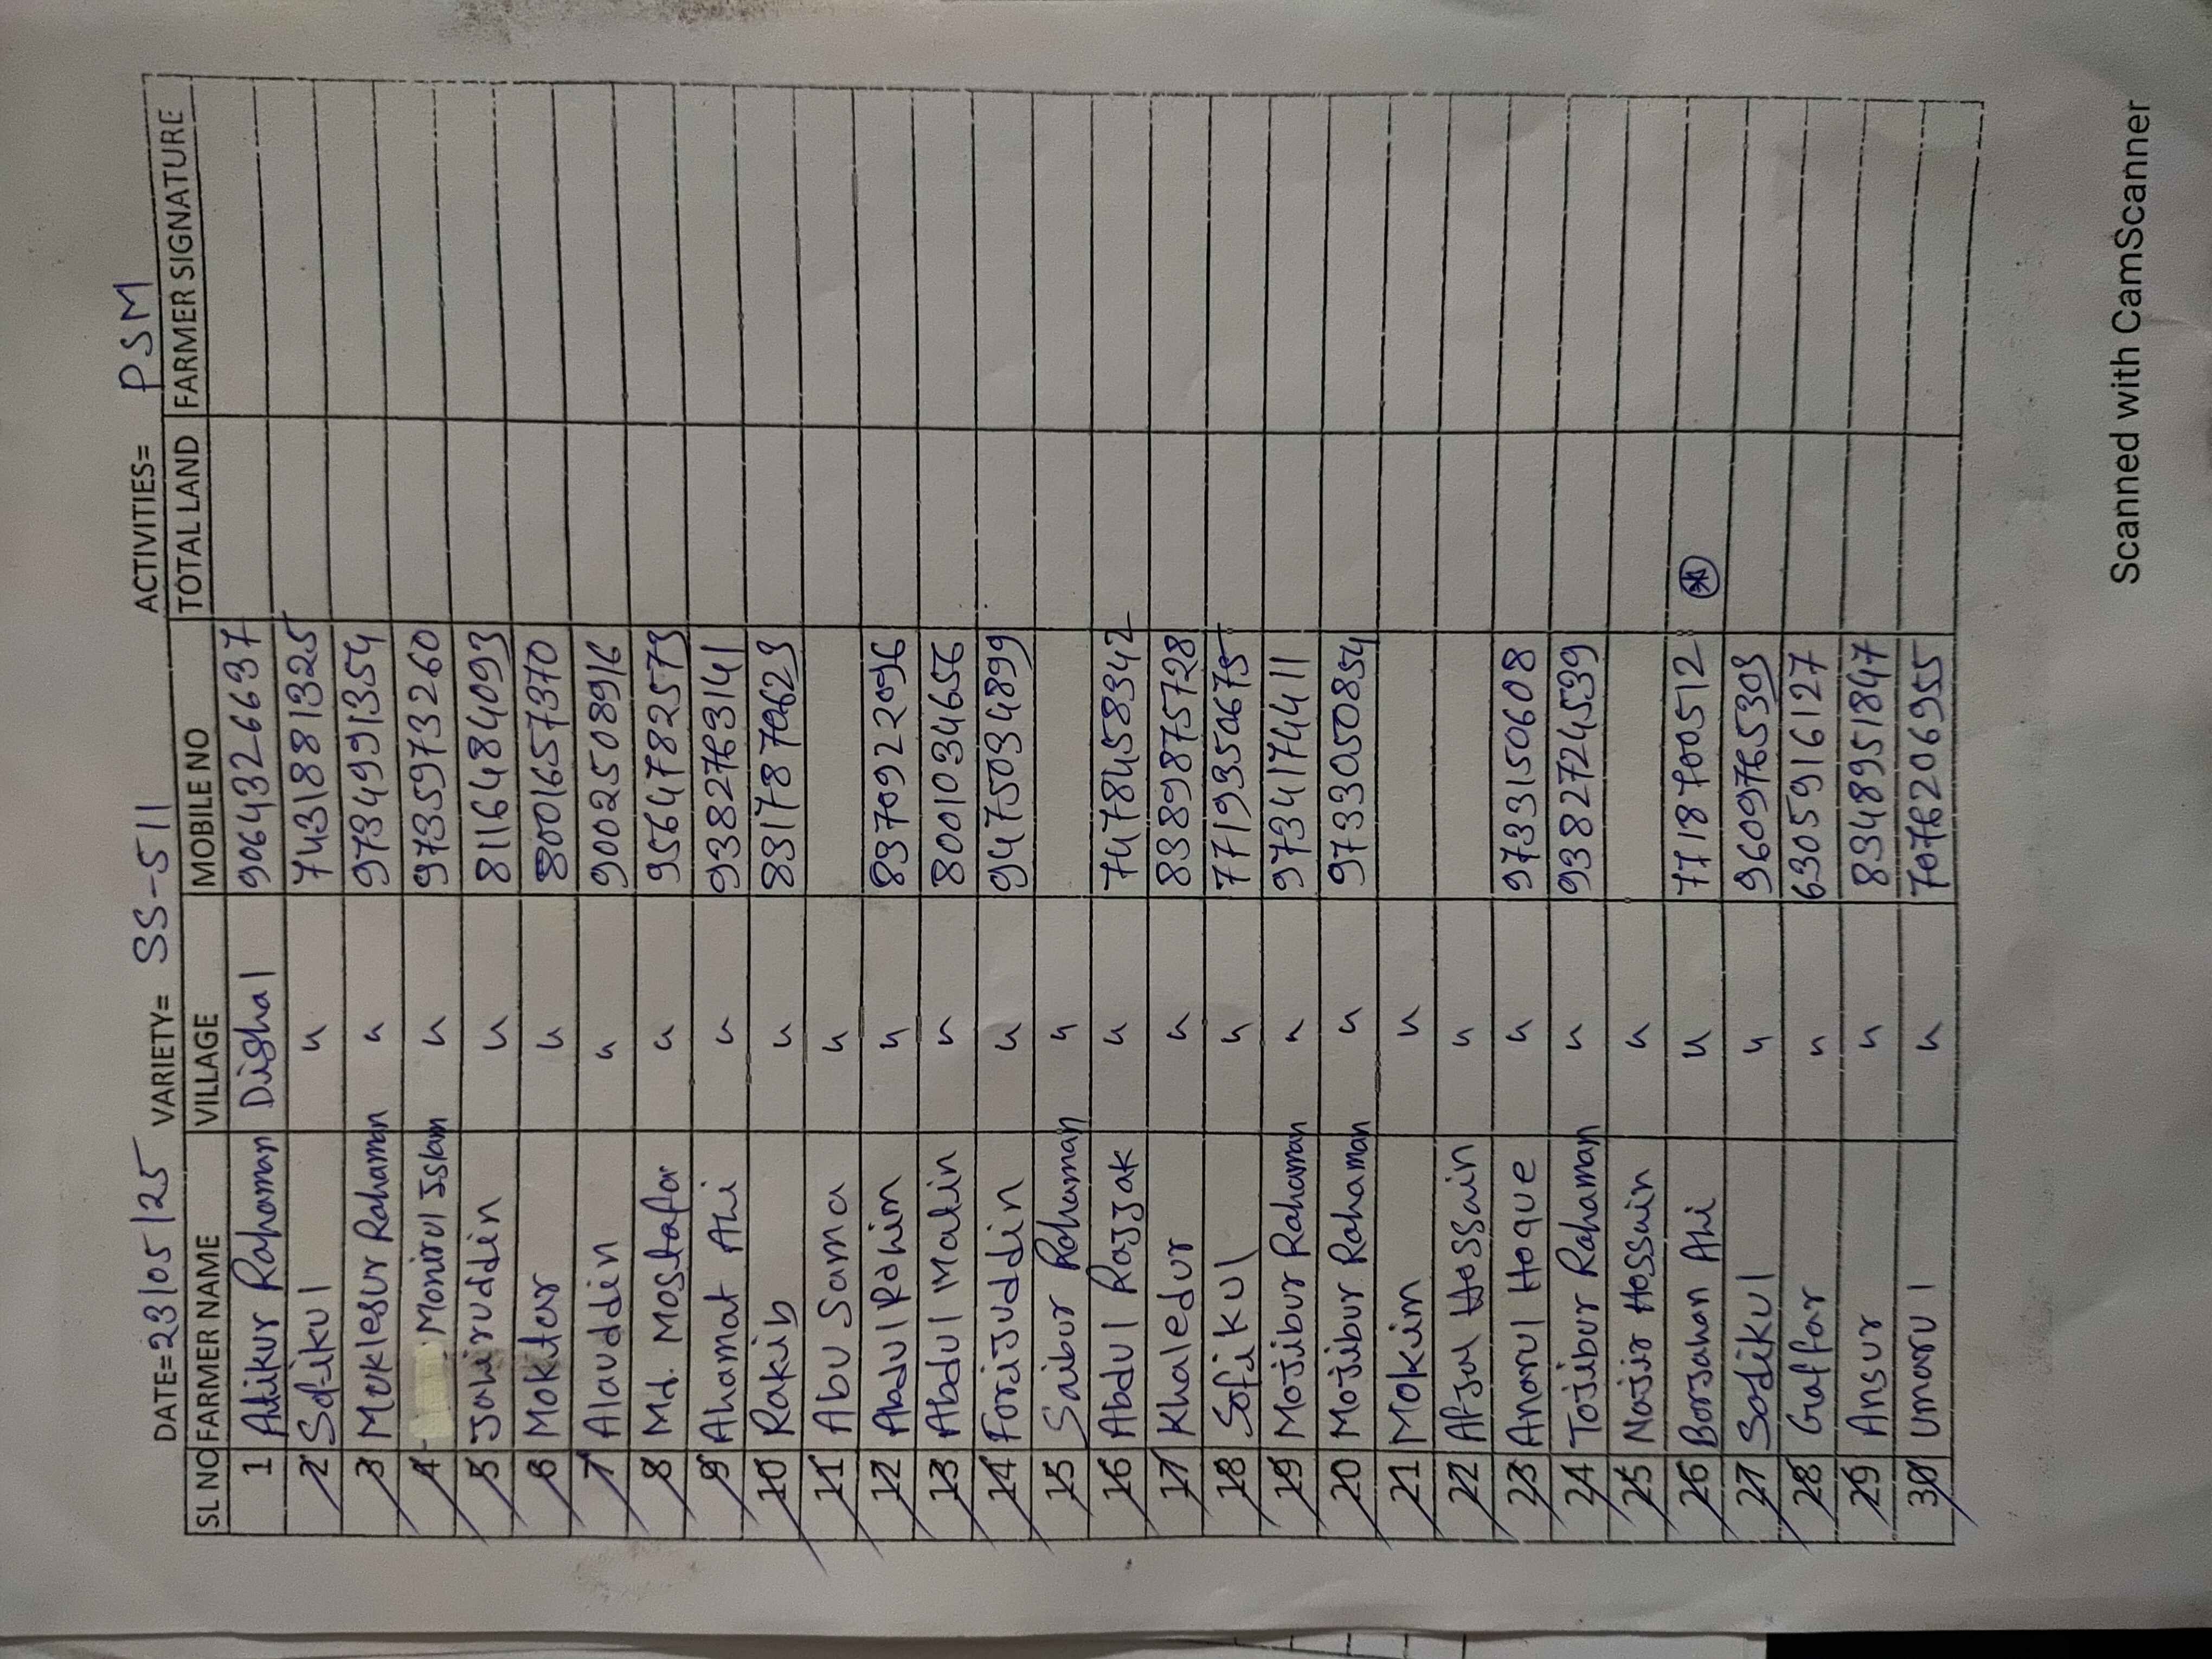 DATE=23/05/25 VARIETY= SS-511 ACTIVITIES= PSM
SL NO FARMER NAME VILLAGE MOBILE NO TOTAL LAND FARMER SIGNATURE
1 Atikur Rahaman Dighal 9064326637
2 Sofikul " 7431881325
3 Moklesur Rahaman " 9734991354
4 Monirul Islam " 9735973260
5 Jahiruddin " 8116484093
6 Moktar " 8001657370
7 Alauddin " 9002508916
8 Md. Mostafa " 9564782573
9 Ahamat Ali " 9382763141
10 Rakib " 8317870623
11 Abu Sama "
12 Abdul Rahim " 8370922096
13 Abdul Malin " 8001034656
14 Forijuddin " 9475034899
15 Saibur Rahaman "
16 Abdul Rajjak " 7478458342
17 Khaledur " 8389875728
18 Sofikul " 7719350675
19 Mojibur Rahaman " 9734174411
20 Mojibur Rahaman " 9733050854
21 Mokim "
22 Afjal Hossain "
23 Anarul Hoque " 9733150608
24 Tojibur Rahaman " 9382724539
25 Najir Hossain "
26 Borjahan Ali " 7718700512
27 Sadikul " 9609765303
28 Gaffar " 6305916127
29 Ansur " 8348951847
30 Umarul " 7076206955
Scanned with CamScanner